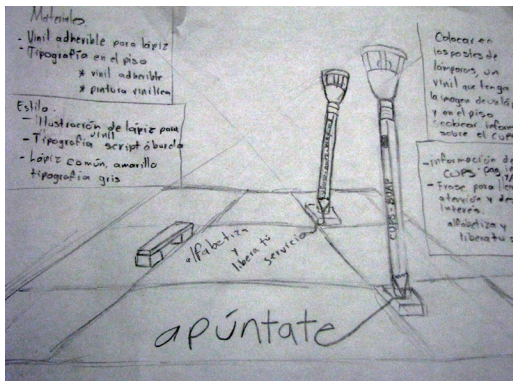 Materiales
- Vinil adherible para lápiz
- Tipografía en el piso
* vinil adherible
* pintura vinílica
Estilo.
- Ilustración de lápiz para
vinil
- Tipografía script ó burda
- Lápiz común, amarillo
tipografía gris
Colocar en
los postes de
lámparas, un
vinil que tenga
la imagen de un lápiz
y en el piso
colocar inform
sobre el CUPS
- Información de
CUPS
- Frase para lla
atención y de
interés.
alfabetiza y
libera tu s
CUPS-BUAP
alfabetiza
y
libera tú
servicio
apúntate